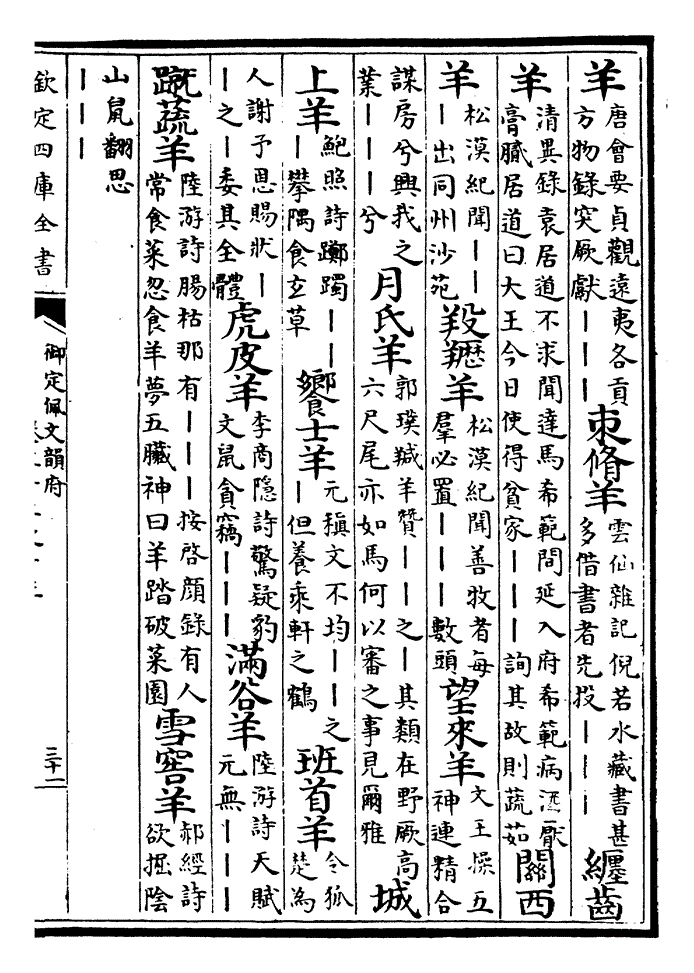 羊唐會要貞觀遠夷各貢方物錄突厥獻丨丨丨束脩羊雲仙雜記倪若水藏書甚多借書者先投丨丨丨纏齒
羊清異錄袁居道不求聞達馬希範間延入府希範病酒厭膏膩居道曰大王今日使得貧家丨丨丨詢其故則蔬茹關西
羊松漠紀聞丨丨丨出同州沙苑羖䍽羊松漠紀聞善牧者每羣必置丨丨丨數頭望來羊文王操五神連精合
謀房兮興我之業丨丨丨兮月氏羊郭璞羬羊贊丨丨之丨其類在野厥高六尺尾亦如馬何以審之事見爾雅城
上羊鮑照詩躑躅丨丨丨攀隅食玄草饗士羊元稹文不均丨丨之丨但養乘軒之鶴班首羊令狐楚為
人謝予恩賜狀丨丨之丨委其全體虎皮羊李商隱詩驚疑豹文鼠貪竊丨丨丨滿谷羊陸游詩天賦元無丨丨丨
蹴蔬羊陸游詩腸枯那有丨丨丨按啓顏錄有人常食菜忽食羊夢五臟神曰羊踏破菜園雪窖羊郝經詩欲掘陰
山鼠翻思丨丨丨
欽定四庫全書
御定佩文韻府
三十二